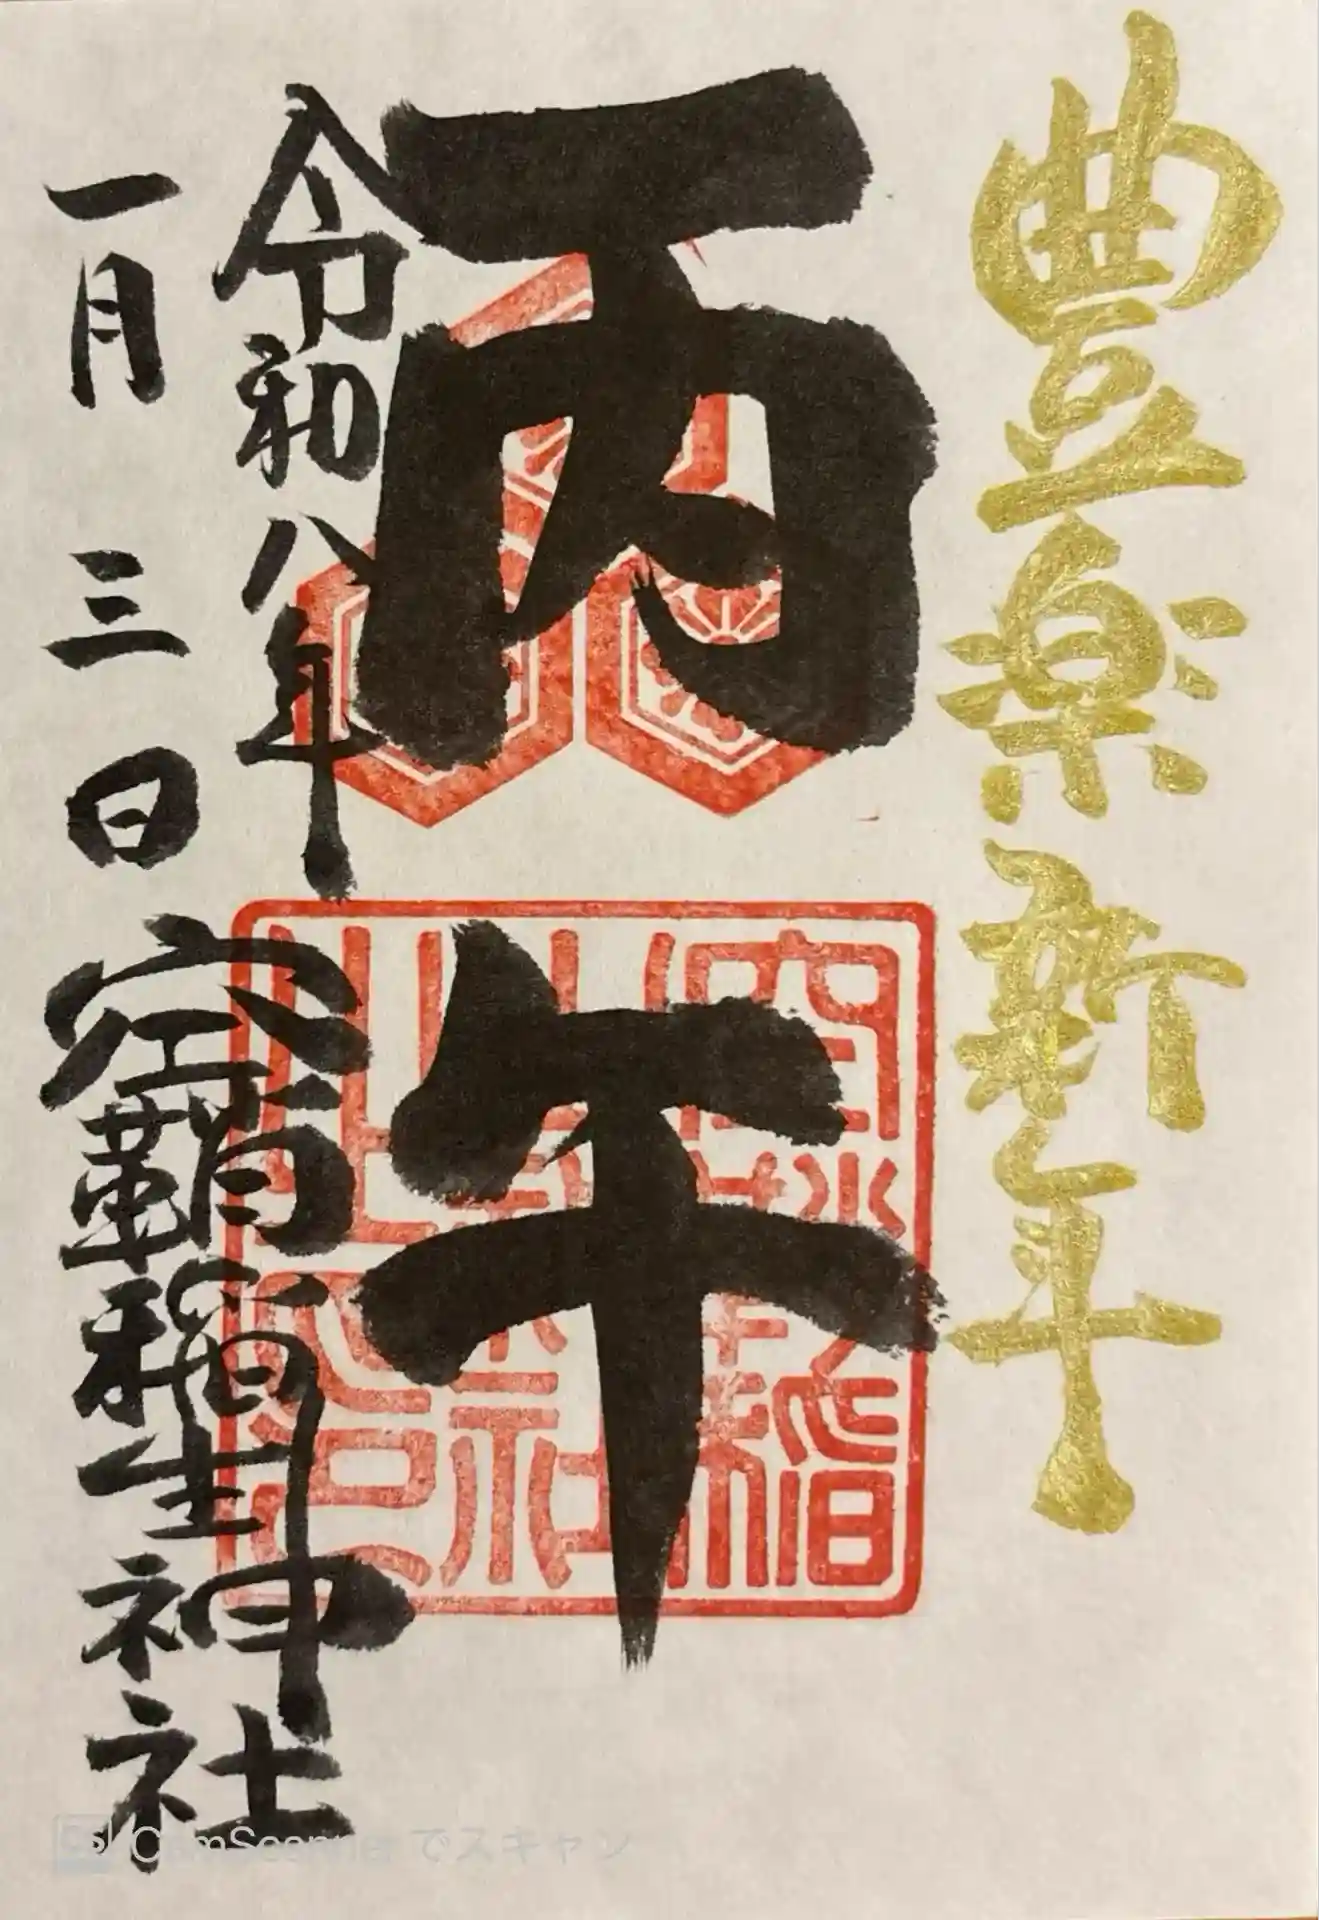 豊楽新年
丙午
令和八年
一月三日
空鞘稲生神社
CamScanner でスキャン